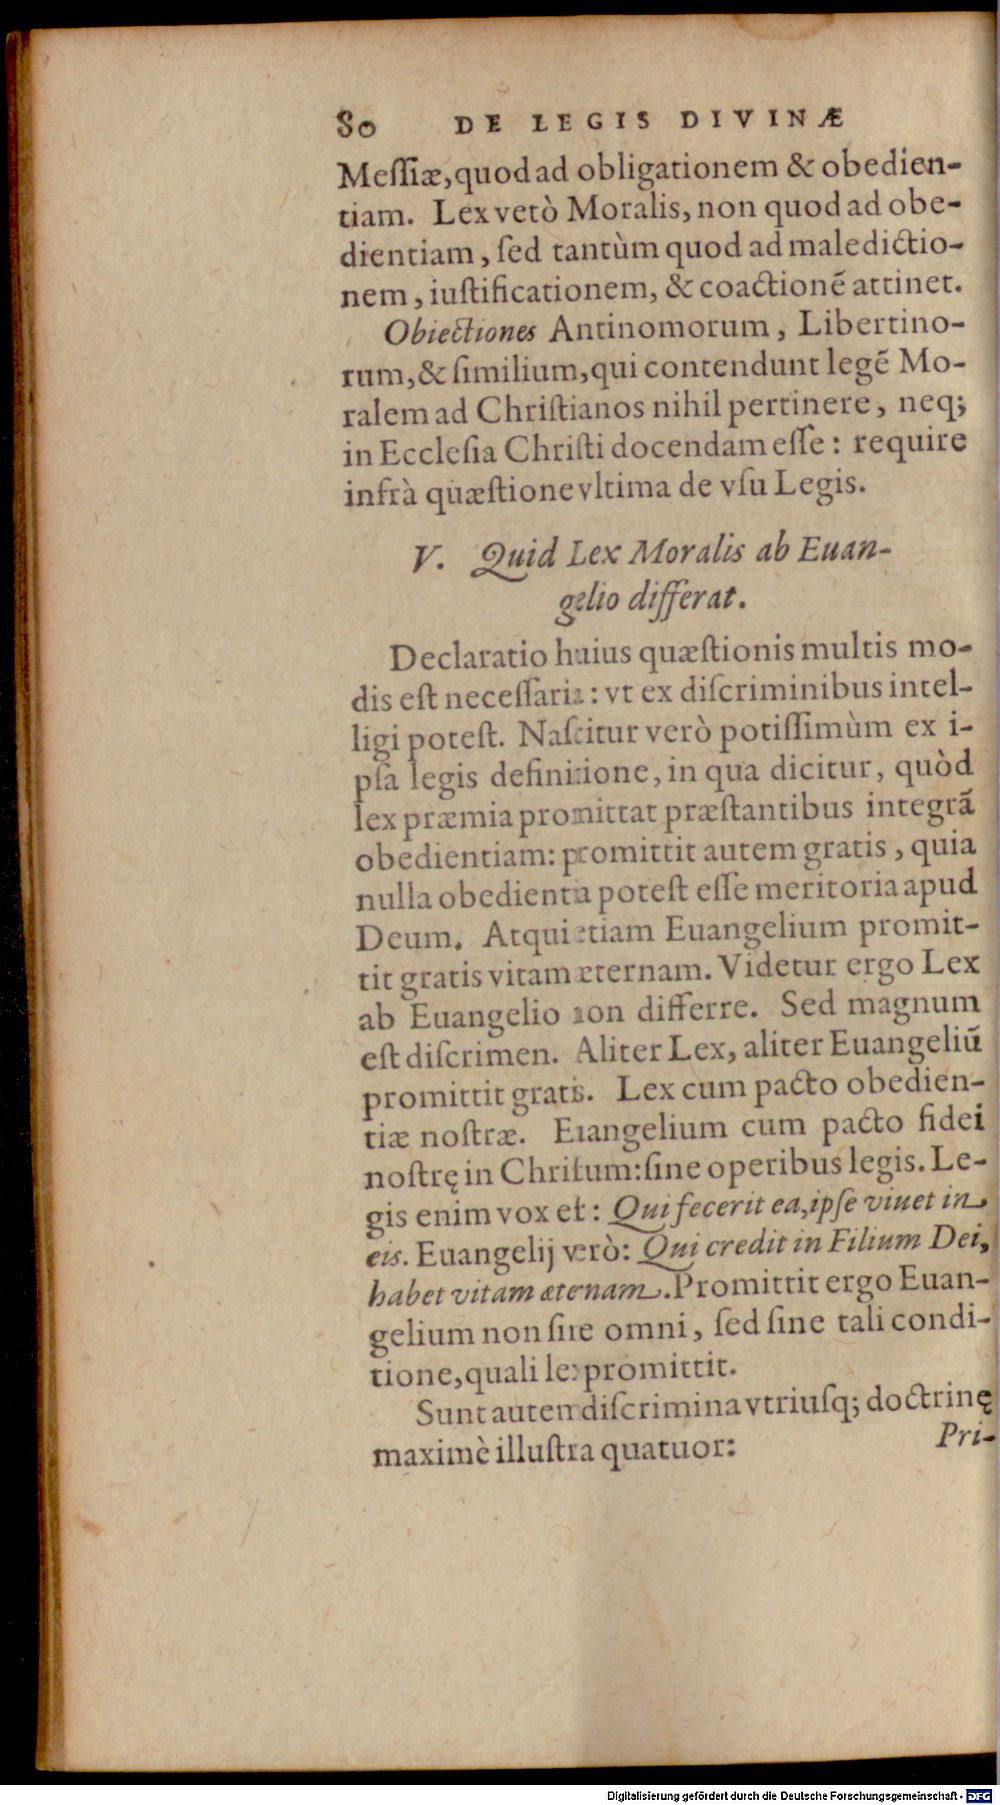 80 DE LEGIS DIVINÆ
Meſſiæ, quod ad obligationem & obedien-
tiam. Lex vetò Moralis, non quod ad obe-
dientiam, ſed tantùm quod ad maledictio-
nem, iuſtificationem, & coactionẽ attinet.
Obiectiones Antinomorum, Libertino-
rum, & ſimilium, qui contendunt legẽ Mo-
ralem ad Chriſtianos nihil pertinere, neq;
in Eccleſia Chriſti docendam eſſe: require
infrà quæſtione vltima de vſu Legis.
V. Quid Lex Moralis ab Euan-
gelio differat.
Declaratio huius quæſtionis multis mo-
dis eſt neceſſaria: vt ex diſcriminibus intel-
ligi poteſt. Naſcitur verò potiſſimùm ex i-
pſa legis definitione, in qua dicitur, quòd
lex præmia promittat præſtantibus integrã
obedientiam: promittit autem gratis, quia
nulla obedientia poteſt eſſe meritoria apud
Deum. Atqui etiam Euangelium promit-
tit gratis vitam æternam. Videtur ergo Lex
ab Euangelio non differre. Sed magnum
eſt diſcrimen. Aliter Lex, aliter Euangeliũ
promittit gratis. Lex cum pacto obedien-
tiæ noſtræ. Euangelium cum pacto fidei
noſtrę in Chriſtum: ſine operibus legis. Le-
gis enim vox eſt: Qui fecerit ea, ipſe viuet in
eis. Euangelij verò: Qui credit in Filium Dei,
habet vitam æternam. Promittit ergo Euan-
gelium non ſine omni, ſed ſine tali condi-
tione, quali lex promittit.
Sunt autem diſcrimina vtriuſq; doctrinę
maximè illuſtra quatuor:
Pri-
Digitalisierung gefördert durch die Deutsche Forschungsgemeinschaft - DFG